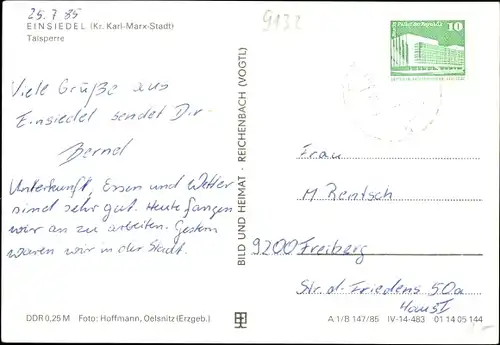 25.7.85
EINSIEDEL (Kr. Karl-Marx-Stadt)
Talsperre
9132
10
Viele Grüße aus
Einsiedel sendet Dir
Bernd
Unterkunft, Essen und Wetter
sind sehr gut. Heute fangen
wir an zu arbeiten. Gestern
waren wir in der Stadt.
BILD UND HEIMAT · REICHENBACH (VOGTL)
Frau
M Rentsch
9200 Freiberg
Str. d. Friedens 50a
Haus I
DDR 0,25 M Foto: Hoffmann, Oelsnitz (Erzgeb.)
A.1/B 147/85 IV-14-483 01 14 05 144